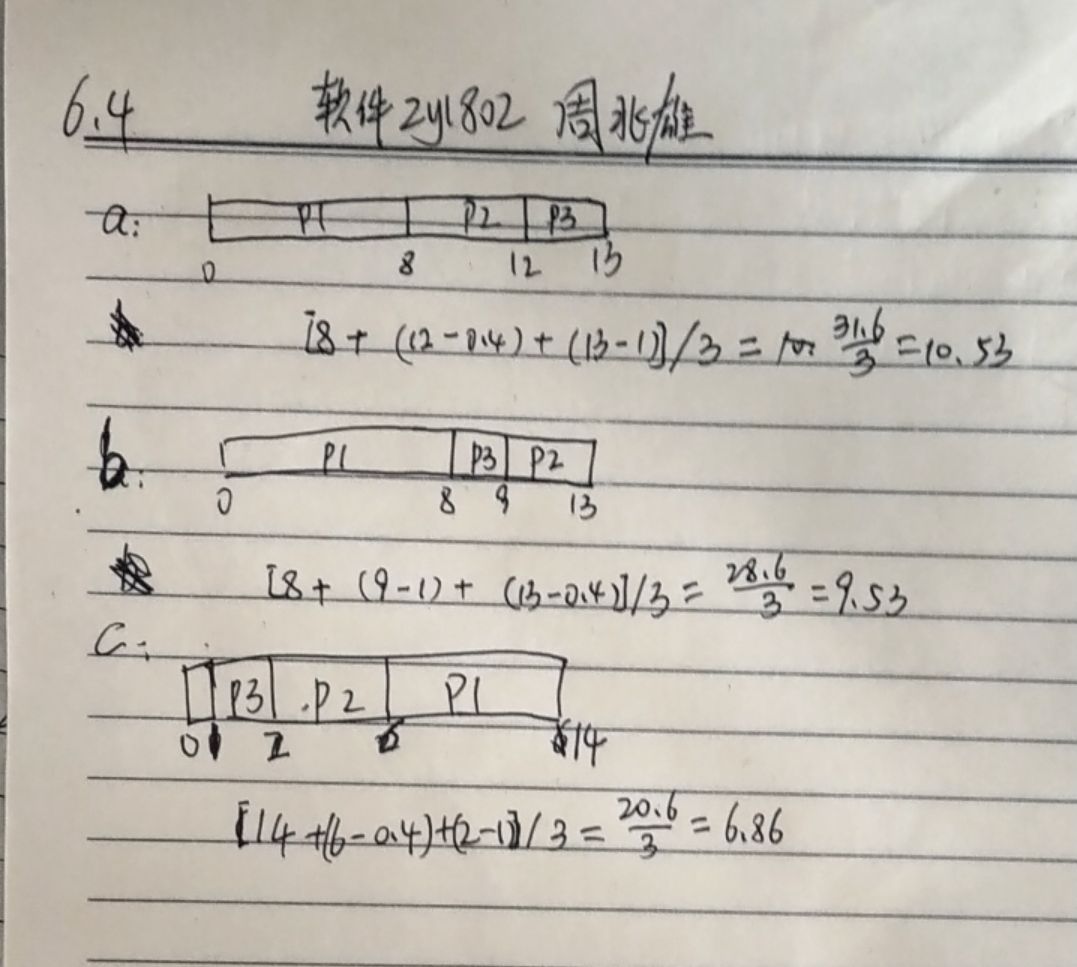 6.4 软件zy1802 周兆雄
a: P1 P2 P3
0 8 12 13
[8 + (12-0.4) + (13-1)]/3 = 31.6/3 = 10.53
b: P1 P3 P2
0 8 9 13
[8 + (9-1) + (13-0.4)]/3 = 28.6/3 = 9.53
c:
P3 P2 P1
0 1 2 6 14
[14 + (6-0.4) + (2-1)]/3 = 20.6/3 = 6.86